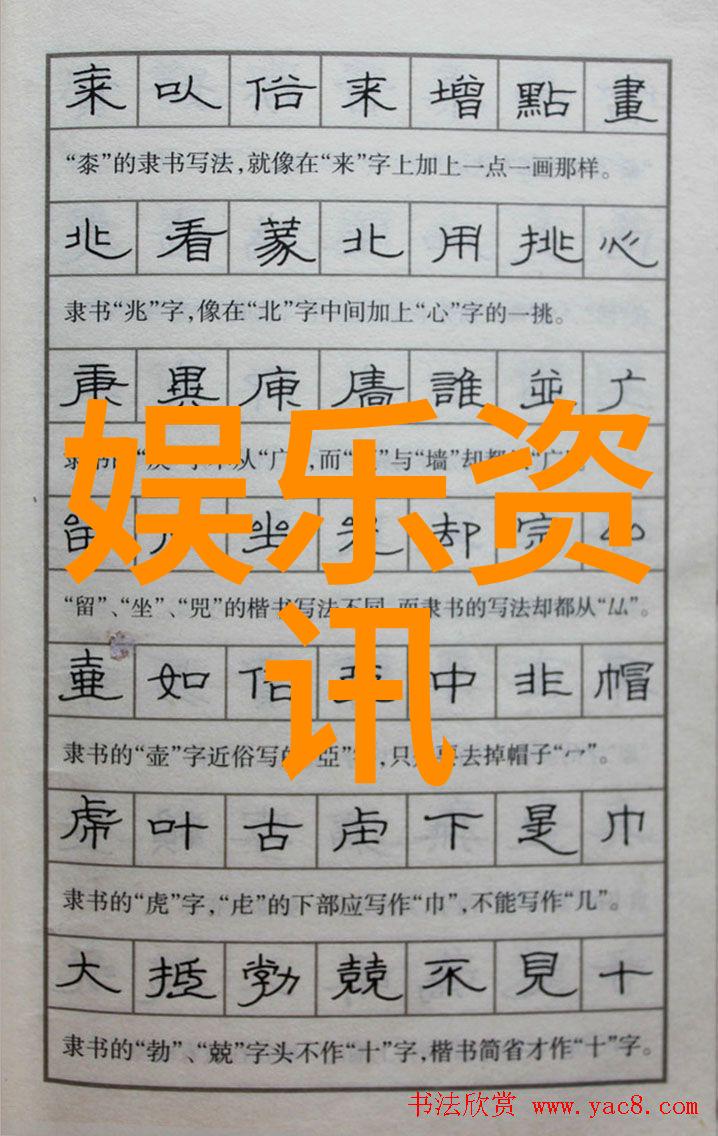 来 以 俗 来 增 點 畫
“桼”的隶书写法，就像在“来”字上加上一点一画那样。
兆 看 篆 北 用 挑 心
隶书“兆”字，像在“北”字中间加上“心”字的一挑。
庚 異 庫 廧 誰 並 广
娱乐资
隶书的 从“广”，而“ ”与“墙”却都
留 坐 咒 却 宗 厸
“留”、“坐”、“咒”的楷书写法不同，而隶书的写法却都从“厸”。
讯
壷 如 俗 中 非 帽
隶书的“壶”字近俗写的“亞” 只 要去掉帽子“宀”。
虎 叶 古 虍 下 是 巾
隶书的“虎”字，“虍”的下部应写作“巾”，不能写作“几”。
大 抵 勃 兢 不 見 十
隶书的“勃”、“兢”字头不作“十”字，楷书简省才作“十”字。
书法欣赏 www.yac8.com